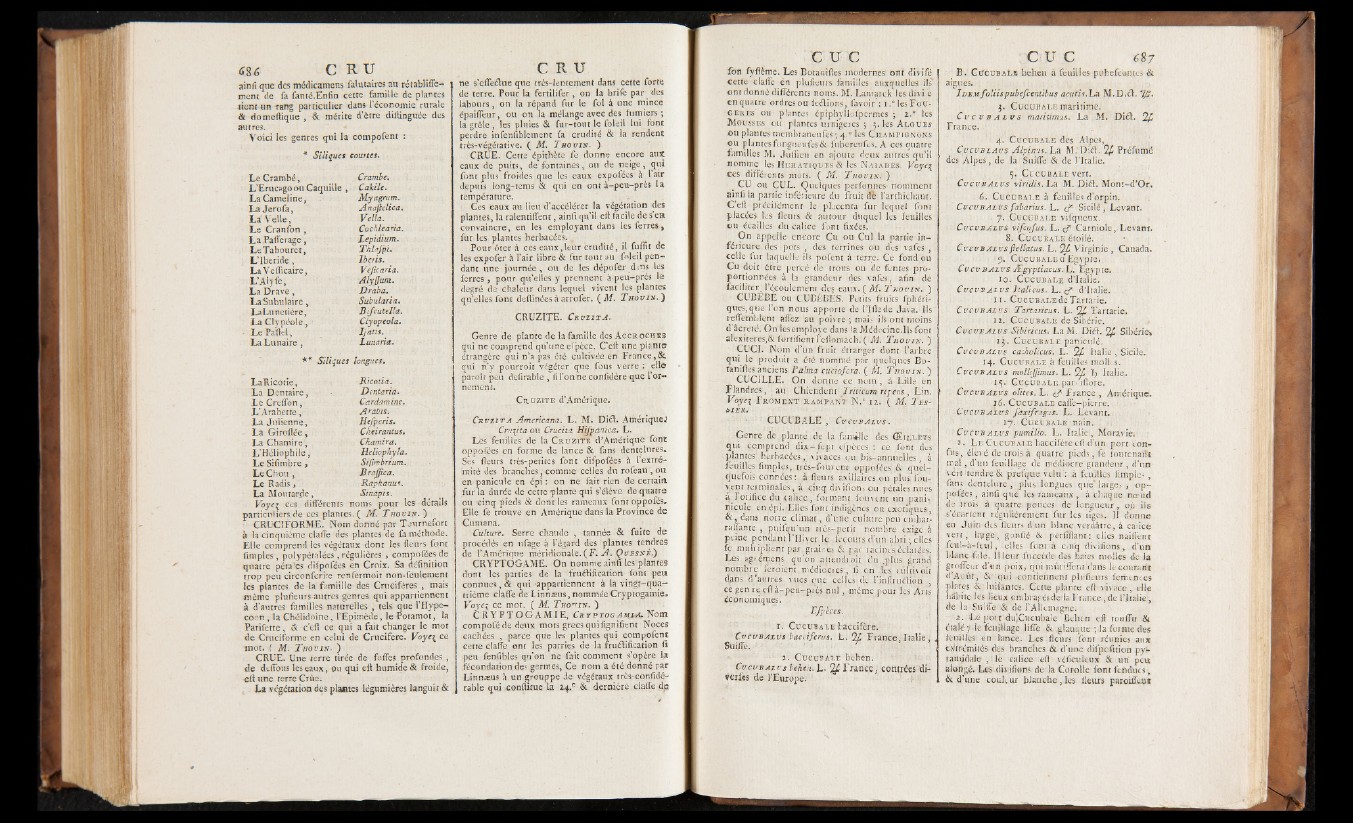 686 C R U
ainſi que des médicamens ſalutaires au rétabliſſe-
ment de ſa ſanté.Enfin cette famille de plantes
tient un rang particulier dans l'économie rurale
& domeſtique , & mérite d'être diſtinguée des
autres.
Voici les genres qui la compoſent :
* Siliques courtes.
Le Crambé, Crambe.
L'Erucago ou Caquille , Cakile.
La Cameline, Myagrum.
La Jeroſa, Anaſtatica.
La Velle, Vella.
Le Cranſon , Cochlearia.
La Paſſerage , Lepidium.
Le Tabouret, Thlaſpi.
L'Iberide , Iberis.
La Veſſicaire, Veſicaria.
L'Alyſe, Alyſſum.
La Drave , Draba.
La Subulaire , Subularia.
La Lunetière, Biſcutella.
La Clypéole , Clypeola.
Le Paſtel, Iſatis.
La Lunaire , Lunaria.
** Siliques longues.
La Ricotie, Ricotia.
La Dentaire , Dentaria.
Le Creſſon , Cardamine.
L'Arabette , Arabis.
La Julienne , Heſperis.
La Giroflée , Cheirantus.
La Chamire , Chamira.
L'Héliophile , Heliophyla.
Le Siſimbre , Siſimbrium.
Le Chou , Braſſica.
Le Radis , Raphanus.
La Moutarde, Sinapis.
Voyez ces différents noms pour les détails
particuliers de ces plantes. ( M. THOUIN. )
CRUCIFORME. Nom donné par Tournefort
à la cinquième claſſe des plantes de ſa méthode.
Elle comprend les végétaux dont les fleurs ſont
ſimples , polypétolées , régulières , compoſées de
quatre pétales diſpoſées en Croix. Sa définition
trop peu circonſcrite renfermoit non-ſeulement
les plantes de la famille des Crucifères , mais
même pluſieurs autres genres qui appartiennent
à d'autres familles naturelles , tels que l'Hypé-
coon , la Chélidoine , l'Epimède, le Potamot, la
Pariſette , & c'eſt ce qui a fait changer le mot
de Cruciforme en celui de Crucifère. Voyez ce
mot. ( M. THOUIN. )
CRUE. Une terre tirée de foſſes profondes ,
de deſſous les eaux , ou qui eſt humide & froide,
eſt une terre Crûe.
La végétation des plantes légumières languit &
C R U
ne s'effectue que très-lentement dans cette ſorte
de terre. Pour la fertiliſer , on la briſe par des
labours , on la répand ſur le ſol à une mince
épaiſſeur , ou on la mélange avec des fumiers ;
la grêle , les pluies & ſur-tout le ſoleil lui font
perdre inſenſiblement ſa crudité & la rendent
très-végérative. ( M. THOUIN. )
CRUE. Cette épithète ſe donne encore aux
eaux de puits, de fontaines, ou de neige , qui
ſont plus froides que les eaux expoſées à l'air
depuis long-tems & qui en ont à-peu-près la
température.
Ces eaux au lieu d'accélérer la végétation des
plantes, la ralentiſſent , ainſi qu'il eſt facile de s'en
convaincre, en les employant dans les ſerres ,
ſur les plantes herbacées.
Pour ôter à ces eaux , leur crudité , il ſuffit de
les expoſer à l'air libre & ſur tout au ſoleil pen-
dant une journée , ou de les dépoſer dans les
ſerres , pour qu'elles y prennent à-peu-près le
degré de chaleur dans lequel vivent les plantes
qu'elles ſont deſtinées à arroſer. ( M. THOUIN. )
CRUZITE. CRUZITA.
Genre de plante de la famille des ARROCHES
qui ne comprend qu'une eſpèce. C'eſt une plante
étrangère qui n'a pas été cultivée en France, &
qui n'y pourroit végéter que ſous verre : elle
paroît peu deſirable , ſi l'on ne conſidère que l'or-
nement.
CRUZITE d'Amérique.
CRUZITA Americana. L. M. Dict. Amérique.
Cruzita ou Crucita Hiſpanica. L.
Les feuilles de la CRUZITE d'Amérique ſont
oppoſées en forme de lance & ſans dentelures.
Ses fleurs très-petites ſont diſpoſées à l'extré-
mité des branches , comme celles du roſeau , ou
en panicule en épi : on ne ſait rien de certain
ſur la durée de cette plante qui s'élève de quatre
ou cinq pieds & dont les rameaux ſont oppoſés.
Elle ſe trouve en Amérique dans la Province de
Cumana.
Culture. Serre chaude , tannée & ſuite de
procédés en uſage à l'égard des plantes tendres
de l'Amérique méridionale. ( F. A. QUESNÉ. )
CRYPTOGAME. On nomme ainſi les plantes
dont les parties de la fructification ſont peu
connues , & qui appartiennent à la vingt-qua-
trième claſſe de Linnæus , nommée Cryptogamie.
Voyez ce mot. ( M. THOUIN. )
CRYPTOGAMIE, CRYPTOGAMIA. Nom
compoſé de deux mots grecs qui ſignifient Noces
cachées , parce que les plantes qui compoſent
cette claſſe ont les parties de la fructification ſi
peu ſenſibles qu'on ne ſait comment s'opère la
fécondation des germes, Ce nom a été donné par
Linnæus à un grouppe de végétaux très-conſidé-
rable qui conſtitue la 24.e & dernière claſſe de
C U C
ſon ſyſtème. Les Botaniſtes modernes ont diviſé
cette claſſe en pluſieurs familles auxquelles ils
ont donné différents noms. M. Lamarck les diviſe
en quatre ordres ou ſections, ſavoir : 1.° les FOU-
GERES ou plantes épiphylloſpermes ; 2.° les
MOUSSES ou plantes urnigères ; 3. les ALGUES
ou plantes membraneuſes ; 4.° les CHAMPIGNONS
ou plantes fongueuſes & ſubereuſes. A ces quatre
familles M. Juſſieu en ajoute deux autres qu'il
nomme les HÉPATIQUES & les NAIADES. Voyez
ces différents mots. ( M. THOUIN. )
CU ou CUL. Quelques perſonnes nomment
ainſi la partie inférieure du fruit de l'artichaut.
C'eſt préciſément le placenta ſur lequel ſont
placées les fleurs & autour duquel les feuilles
ou écailles du calice ſont fixées.
On appelle encore Cu ou Cul la partie in-
férieure des pots , des terrines ou des vaſes ,
celle ſur laquelle ils poſent à terre. Ce fond ou
Cu doit être percé de trous ou de fentes pro-
portionnées à la grandeur des vaſes, afin de
faciliter l'écoulement des eaux. ( M. THOUIN. )
CUBÈBE ou CUBÈBES. Petits fruits ſphéri-
ques, que l'on nous apporte de l'Iſle de Java. Ils
reſſemblent aſſez au poivre ; mais ils ont moins
d'âcreté. On les employe dans la Médecine. Ils ſont
alexitères, & fortifient l'eſtomach. ( M. THOUIN. )
CUCI. Nom d'un fruit étranger dont l'arbre
qui le produit a été nommé par quelques Bo-
taniſtes anciens Palma cuciofera. ( M. THOUIN. )
CUCILLE. On donne ce nom , à Lille en
Flandres , au Chiendent Triticum repens , Lin.
Voyez FROMENT RAMPANT N.° 12. ( M. TES-
SIER.
CUCUBALE , CUCUBALUS.
Genre de plante de la famille des ŒILLETS
qui comprend dix-ſept eſpèces : ce ſont des
plantes herbacées , vivaces ou bis-annuelles , à
feuilles ſimples, très-ſouvent oppoſées & quel-
quefois connées : à fleurs axillaires ou plus ſou-
vent terminales , à cinq diviſions ou pétales nues
à l'orifice du calice , formant ſouvent un pani-
nicule en épi. Elles ſont indigènes ou exotiques ,
& , dans notre climat , d'une culture peu embar-
raſſante , puiſqu'un très-petit nombre exige à
peine pendant l'Hiver le ſecours d'un abri ; elles
ſe multiplient par graines & par racines éclatées.
Les agrémens qu'on attendroit du plus grand
nombre ſeroient médiocres , ſi on les cultivoit
dans d'autres vues que celles de l'inſtruction ,
ce genre eſt à-peu-près nul , même pour les Arts
économiques.
Eſpèces.
1. CUCUBALE baccifère.
CUCUBALUS bacciferus. L. ♃ France, Italie,
Suiſſe.
2. CUCUBALE behen.
CUCUBALUS behen. L. ♃ France , contrées di-
verſes de l'Europe.
C U C 687
B. CUCUBALE behen à feuilles pubeſcentes &
aigues.
IDEM foliis pubeſcentibus acutis. La M. Dict. ♃.
3. CUCUBALE maritime.
CUCUBALUS maritimus. La M. Dict. ♃
France.
4. CUCUBALE des Alpes,
CUCUBALUS Alpinus. La M. Dict. ♃ Préſumé
des Alpes , de la Suiſſe & de l'Italie.
5. CUCUBALE vert.
CUCUBALUS viridis. La M. Dict. Mont-d'Or.
6. CUCUBALE à feuilles d'orpin.
CUCUBALUS fabarius. L. ♂ Sicile , Levant.
7. CUCUBALE viſqueux.
CUCUBALUS viſcoſus. L. ♂ Carniole , Levant.
8. CUCUBALE étoilé.
CUCUBALUS ſtellatus. L. ♃ Virginie , Canada.
9. CUCUBALE d'Egypte.
CUCUBALUS Ægyptiacus. L. Egypte.
10. CUCUBALE d'Italie.
CUCUBALUS Italicus. L. ♂ d'Italie.
11. CUCUBALE de Tartarie.
CUCUBALUS Tartaricus. L. ♃ Tartarie.
12. CUCUBALE de Sibérie.
CUCUBALUS Sibiricus. La M. Dict. ♃ Sibérie.
13. CUCUBALE paniculé.
CUCUBALUS catholicus. L. ♃ Italie , Sicile.
14. CUCUBALE à feuilles molles.
CUCUBALUS molliſſimus. L. ♃ ♄ Italie.
15. CUCUBALE parviflore.
CUCUBALUS otites. L. ♂ France , Amérique.
16. CUCUBALE caſſe-pierre.
CUCUBALUS ſaxifragus. L. Levant.
17. CUCUBALE nain.
CUCUBALUS pumilio. L. Italie , Moravie.
1. LE CUCUBALE baccifère eſt d'un port con-
fus , élevé de trois à quatre pieds , ſe ſoutenant
mal , d'un feuillage de médiocre grandeur , d'un
vert tendre & preſque velu : à feuilles ſimples ,
ſans dentelure , plus longues que larges , op-
poſées , ainſi que les rameaux , à chaque nœud
de trois à quatre pouces de longueur , où ils
s'écartent régulièrement ſur les tiges. Il donne
en Juin des fleurs d'un blanc verdâtre , à calice
vert , large , gonflé & perſiſtant : elles naiſſent
ſeul-à-ſeul , elles ſont à cinq diviſions , d'un
blanc ſale. Il leur ſuccède des baies molles de la
groſſeur d'un pois , qui mûriſſent dans le courant
d'Août , & qui contiennent pluſieurs ſemences
plates & luiſantes. Cette plante eſt vivace , elle
habite les lieux ombragés de la France , de l'Italie ,
de la Suiſſe & de l'Allemagne.
2. Le port du Cucubale Behen eſt touffu &
étalé ; le feuillage liſſe & glauque ; la forme des
feuilles en lance. Les fleurs ſont réunies aux
extrémités des branches & d'une diſpoſition py-
ramidale , le calice eſt véſiculeux & un peu
alongé. Les diviſions de la Corolle ſont fendues ,
& d'une couleur blanche , les fleurs paroiſſent